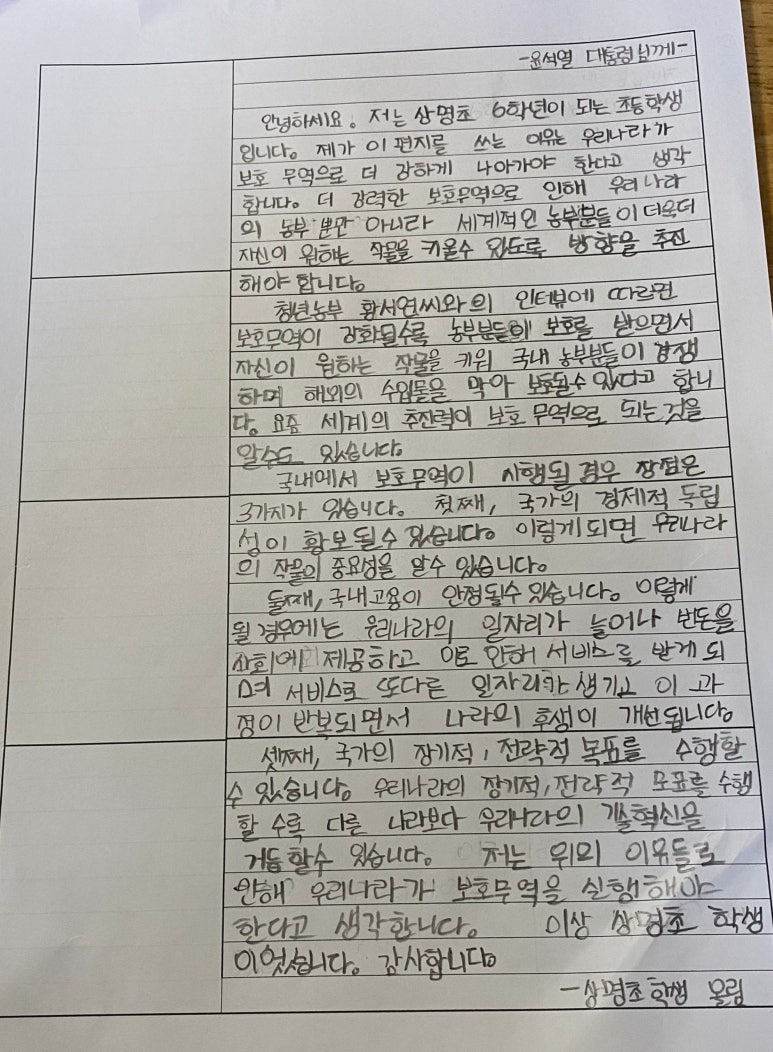 -윤석열 대통령님께-
안녕하세요. 저는 상명초 6학년이 되는 초등학생
입니다. 제가 이 편지를 쓰는 이유는 우리나라가
보호 무역으로 더 강하게 나아가야 한다고 생각
합니다. 더 강력한 보호무역으로 인해 우리나라
의 농부 뿐만 아니라 세계적인 농부분들이 더욱더
자신이 원하는 작물을 키울수 있도록 방향을 추진
해야 합니다.
청년농부 황서연씨와의 인터뷰에 따르면
보호무역이 강화될수록 농부분들이 보호를 받으면서
자신이 원하는 작물을 키워 국내 농부분들이 경쟁
하며 해외의 수입물을 막아 보호될수 있다고 합니
다. 요즘 세계의 추진력이 보호 무역으로 되는것을
알수도 있습니다.
국내에서 보호무역이 시행될 경우 장점은
3가지가 있습니다. 첫째, 국가의 경제적 독립
성이 확보될수 있습니다. 이렇게되면 우리나라
의 작물의 중요성을 알수 있습니다.
둘째, 국내고용이 안정될수 있습니다. 이렇게
될 경우에는 우리나라의 일자리가 늘어나 번돈을
사회에 제공하고 이로 인해 서비스를 받게 되
며 서비스로 또다른 일자리가 생기고 이 과
정이 반복되면서 나라의 후생이 개선됩니다.
셋째, 국가의 장기적, 전략적 목표를 수행할
수 있습니다. 우리나라의 장기적, 전략적 목표를 수행
할 수록 다른 나라보다 우리나라의 기술혁신을
거듭할수 있습니다. 저는 위의 이유들로
인해 우리나라가 보호무역을 실행해야
한다고 생각합니다. 이상 상명초 학생
이었습니다. 감사합니다.
-상명초학생 올림